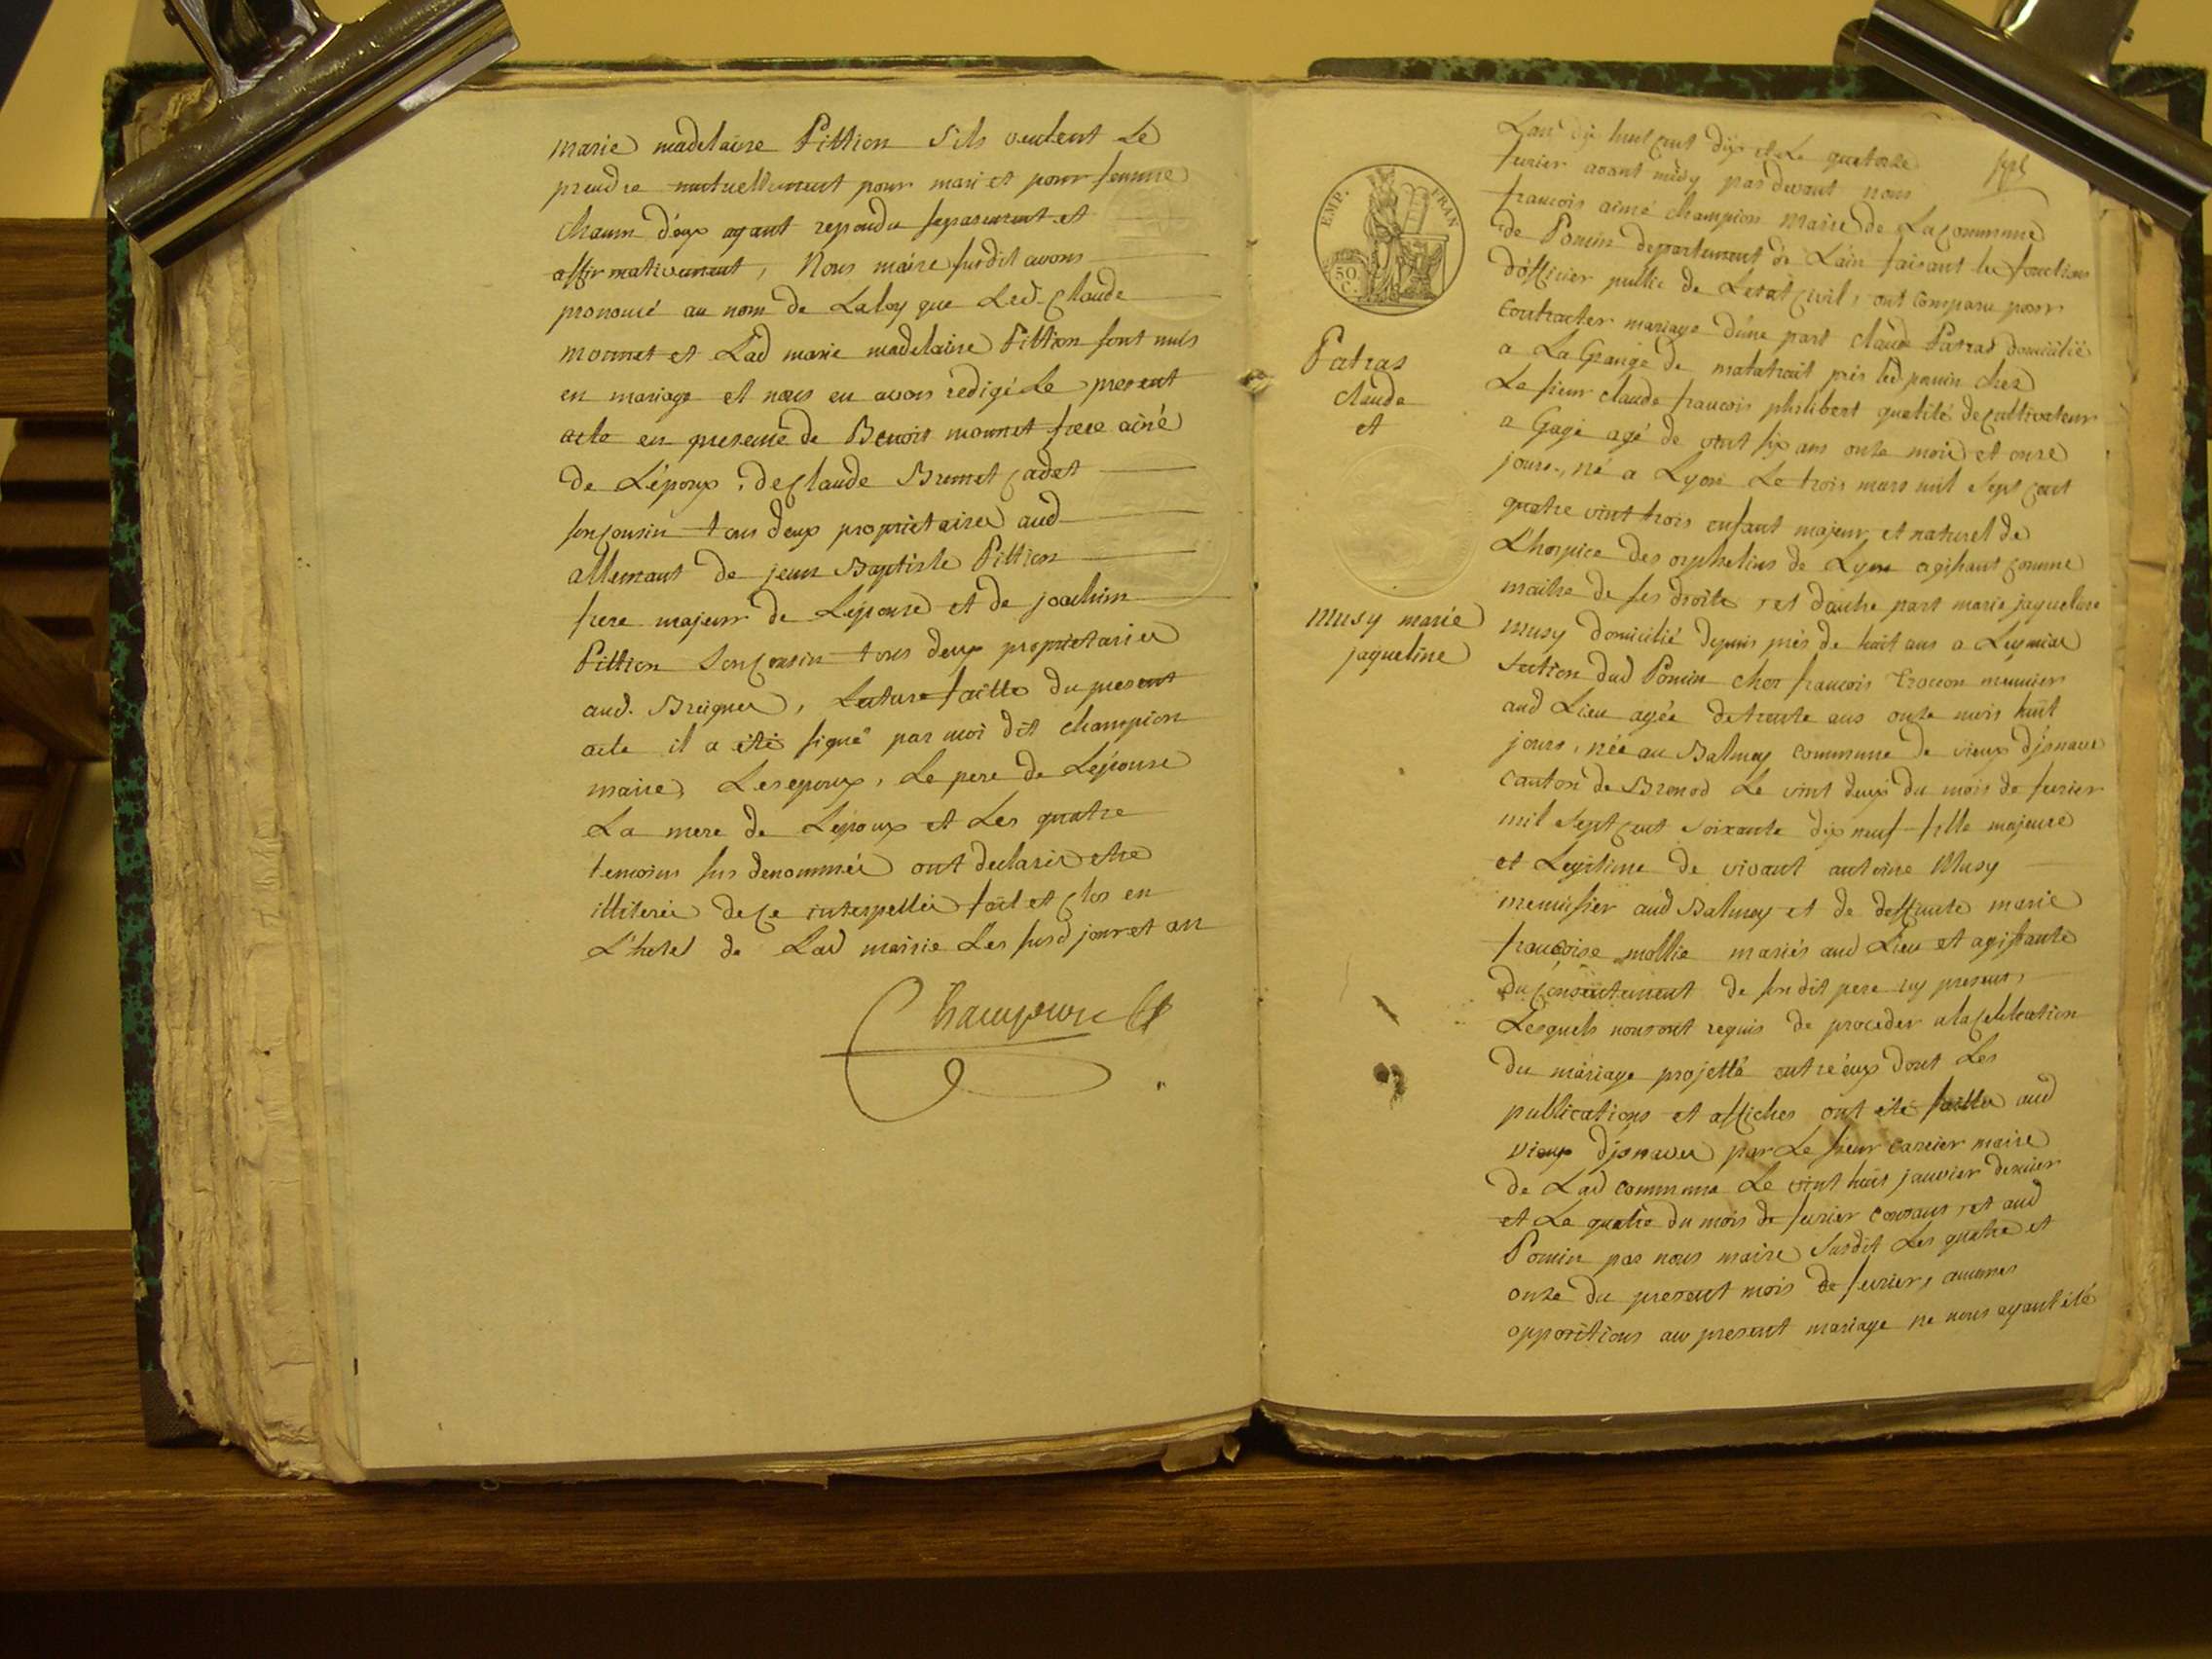 marie madelaine Pittion s'ils veulent se
prendre mutuellement pour mari et pour femme
chacun d'eux ayant repondu separement et
affirmativement, Nous maire susdit avons
prononcé au nom de Laloy que Led. Claude
monnet et Lad marie madelaine Pittion sont unis
en mariage et nous en avons redigé Le present
acte en presence de Benoit monnet frere ainé
de L'époux, de Claude Brunet cadet
son cousin tous deux proprietaires aud
allemant de jean Baptiste Pittion
frere majeur de Lepouse et de joachim
Pittion son cousin tous deux proprietaires
aud. Breignes, Lecture faitte du present
acte il a été signé par moi dit champion
maire, Les epoux, Le pere de Lépouse
La mere de Lepoux et Les quatre
temoins sus denommés ont declarés etre
illiterés de ce interpellés fait et clos en
L'hotel de Lad mairie Les susd jour et an
Champion
EMP. FRAN
50 C.
Patras
claude
et
Musy marie
jaqueline
sept
Lan dix huit cent dix et Le quatorze
fevrier avant midy par devant nous
francois aimé champion maire de La commune
de Poncin departement de L'ain faisant les fonctions
d'officier public de Letat civil, ont comparu pour
contracter mariage d'une part claude Patras domicilié
a La Grange de matatrait près led poncin chez
Le sieur claude francois philibert qualité de cultivateur
a Gage agé de vint six ans onze mois et onze
jours, né a Lyon Le trois mars mil sept cent
quatre vint trois enfant majeur et naturel de
Lhospice des orphelins de Lyon agissant comme
maitre de ses droits, et d'autre part marie jaqueline
musy domicilié depuis près de huit ans a Leymiat
section dud Poncin chez francois Trocon meunier
aud Lieu agée de trente ans onze mois huit
jours, née au Balmay commune de vieux d'jsnave
canton de Brenod Le vint deux du mois de fevrier
mil sept cent soixante dix neuf fille majeure
et Legitime de vivant antoine Musy
menuisier aud Balmay et de deffunte marie
francoise mollie mariés aud Lieu et agissante
du consentement de son dit pere icy present,
Lesquels nous ont requis de proceder a la celebration
du mariage projetté entre eux dont Les
publications et affiches ont été faittes aud
vieux d'jsnaves par Le sieur carrier maire
de Lad commune Le vint huit janvier dernier
et Le quatre du mois de fevrier courant, et aud
Poncin par nous maire susdit Les quatre et
onze du present mois de fevrier, aucunes
oppositions au present mariage ne nous ayant été